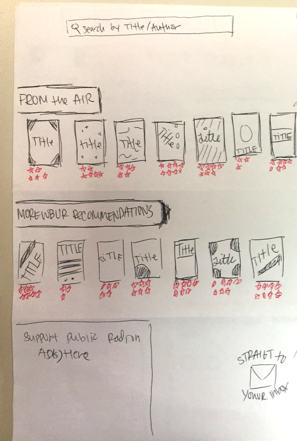 Search by Title/Author
FROM the AIR
Title
Title
Title
Title
Title
TITLE
TITLE
MORE WBUR RECOMMENDATIONS
TITLE
TITLE
TITLE
TITLE
TITLE
Title
Title
Support Public Radio
Ad(s) Here
STRAIGT to
Your inbox